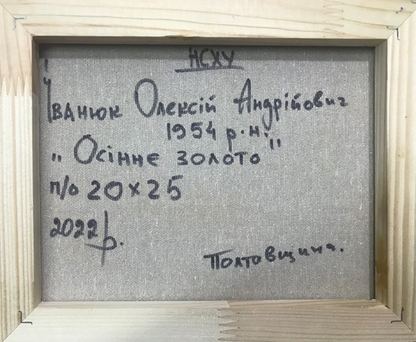 НСХУ
Іванюк Олексій Андрійович
1954 р.н.
„Осіннє золото"
п/о 20х25
2022 р.
Полтавщина.